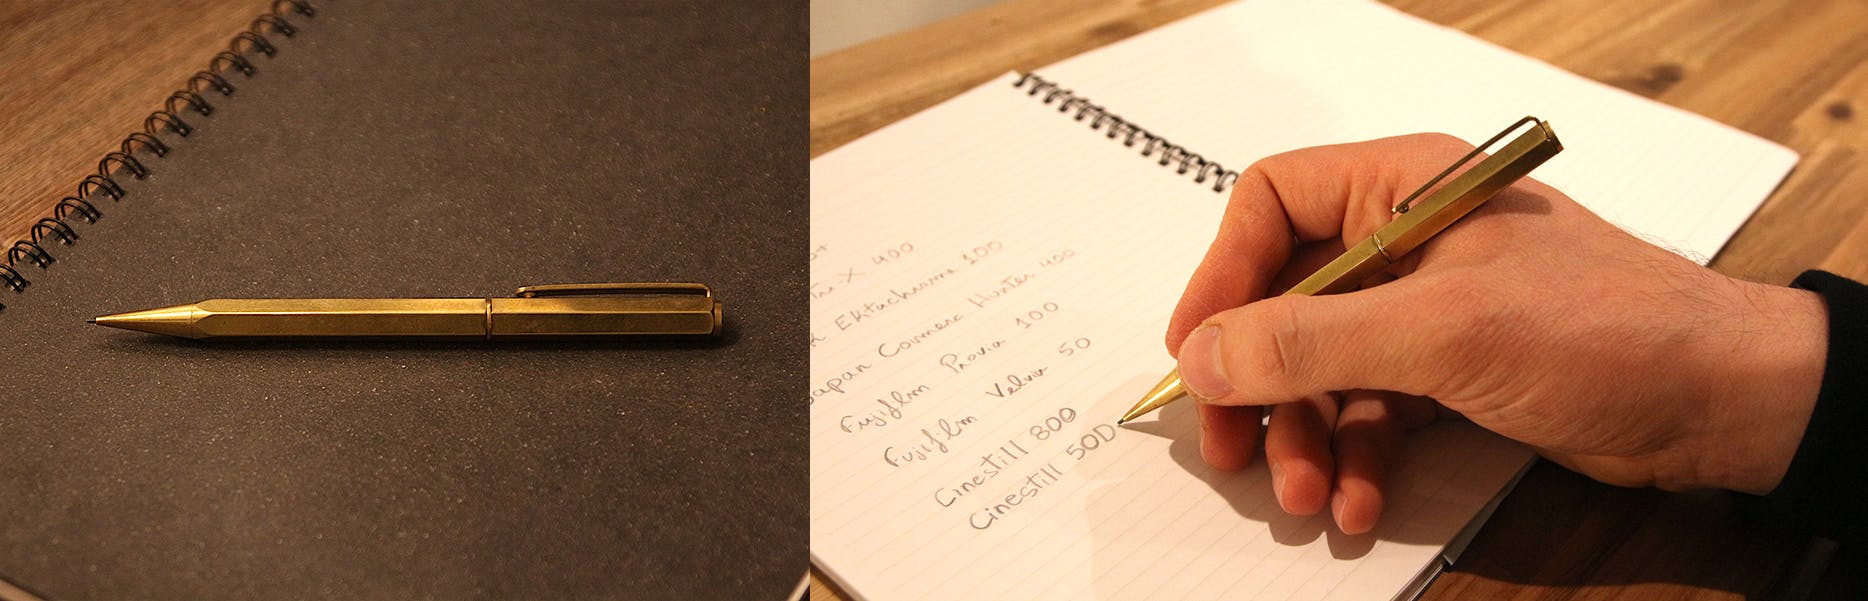 Tri-X 400
Ektachrome 100
Japan Camera Hunter 400
Fujifilm Provia 100
Fujifilm Velvia 50
Cinestill 800
Cinestill 50D